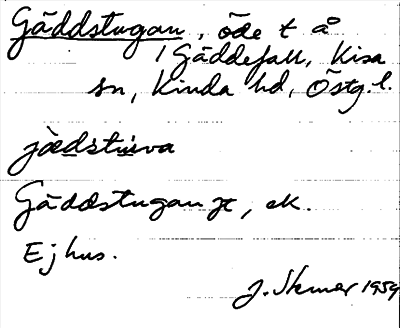 Gäddstugan, öde t å
1 Gäddefall, Kisa
sn, Kinda hd, Östg. l.
jädstuva
Gäddstugan, ek.
Ej hus.
1959